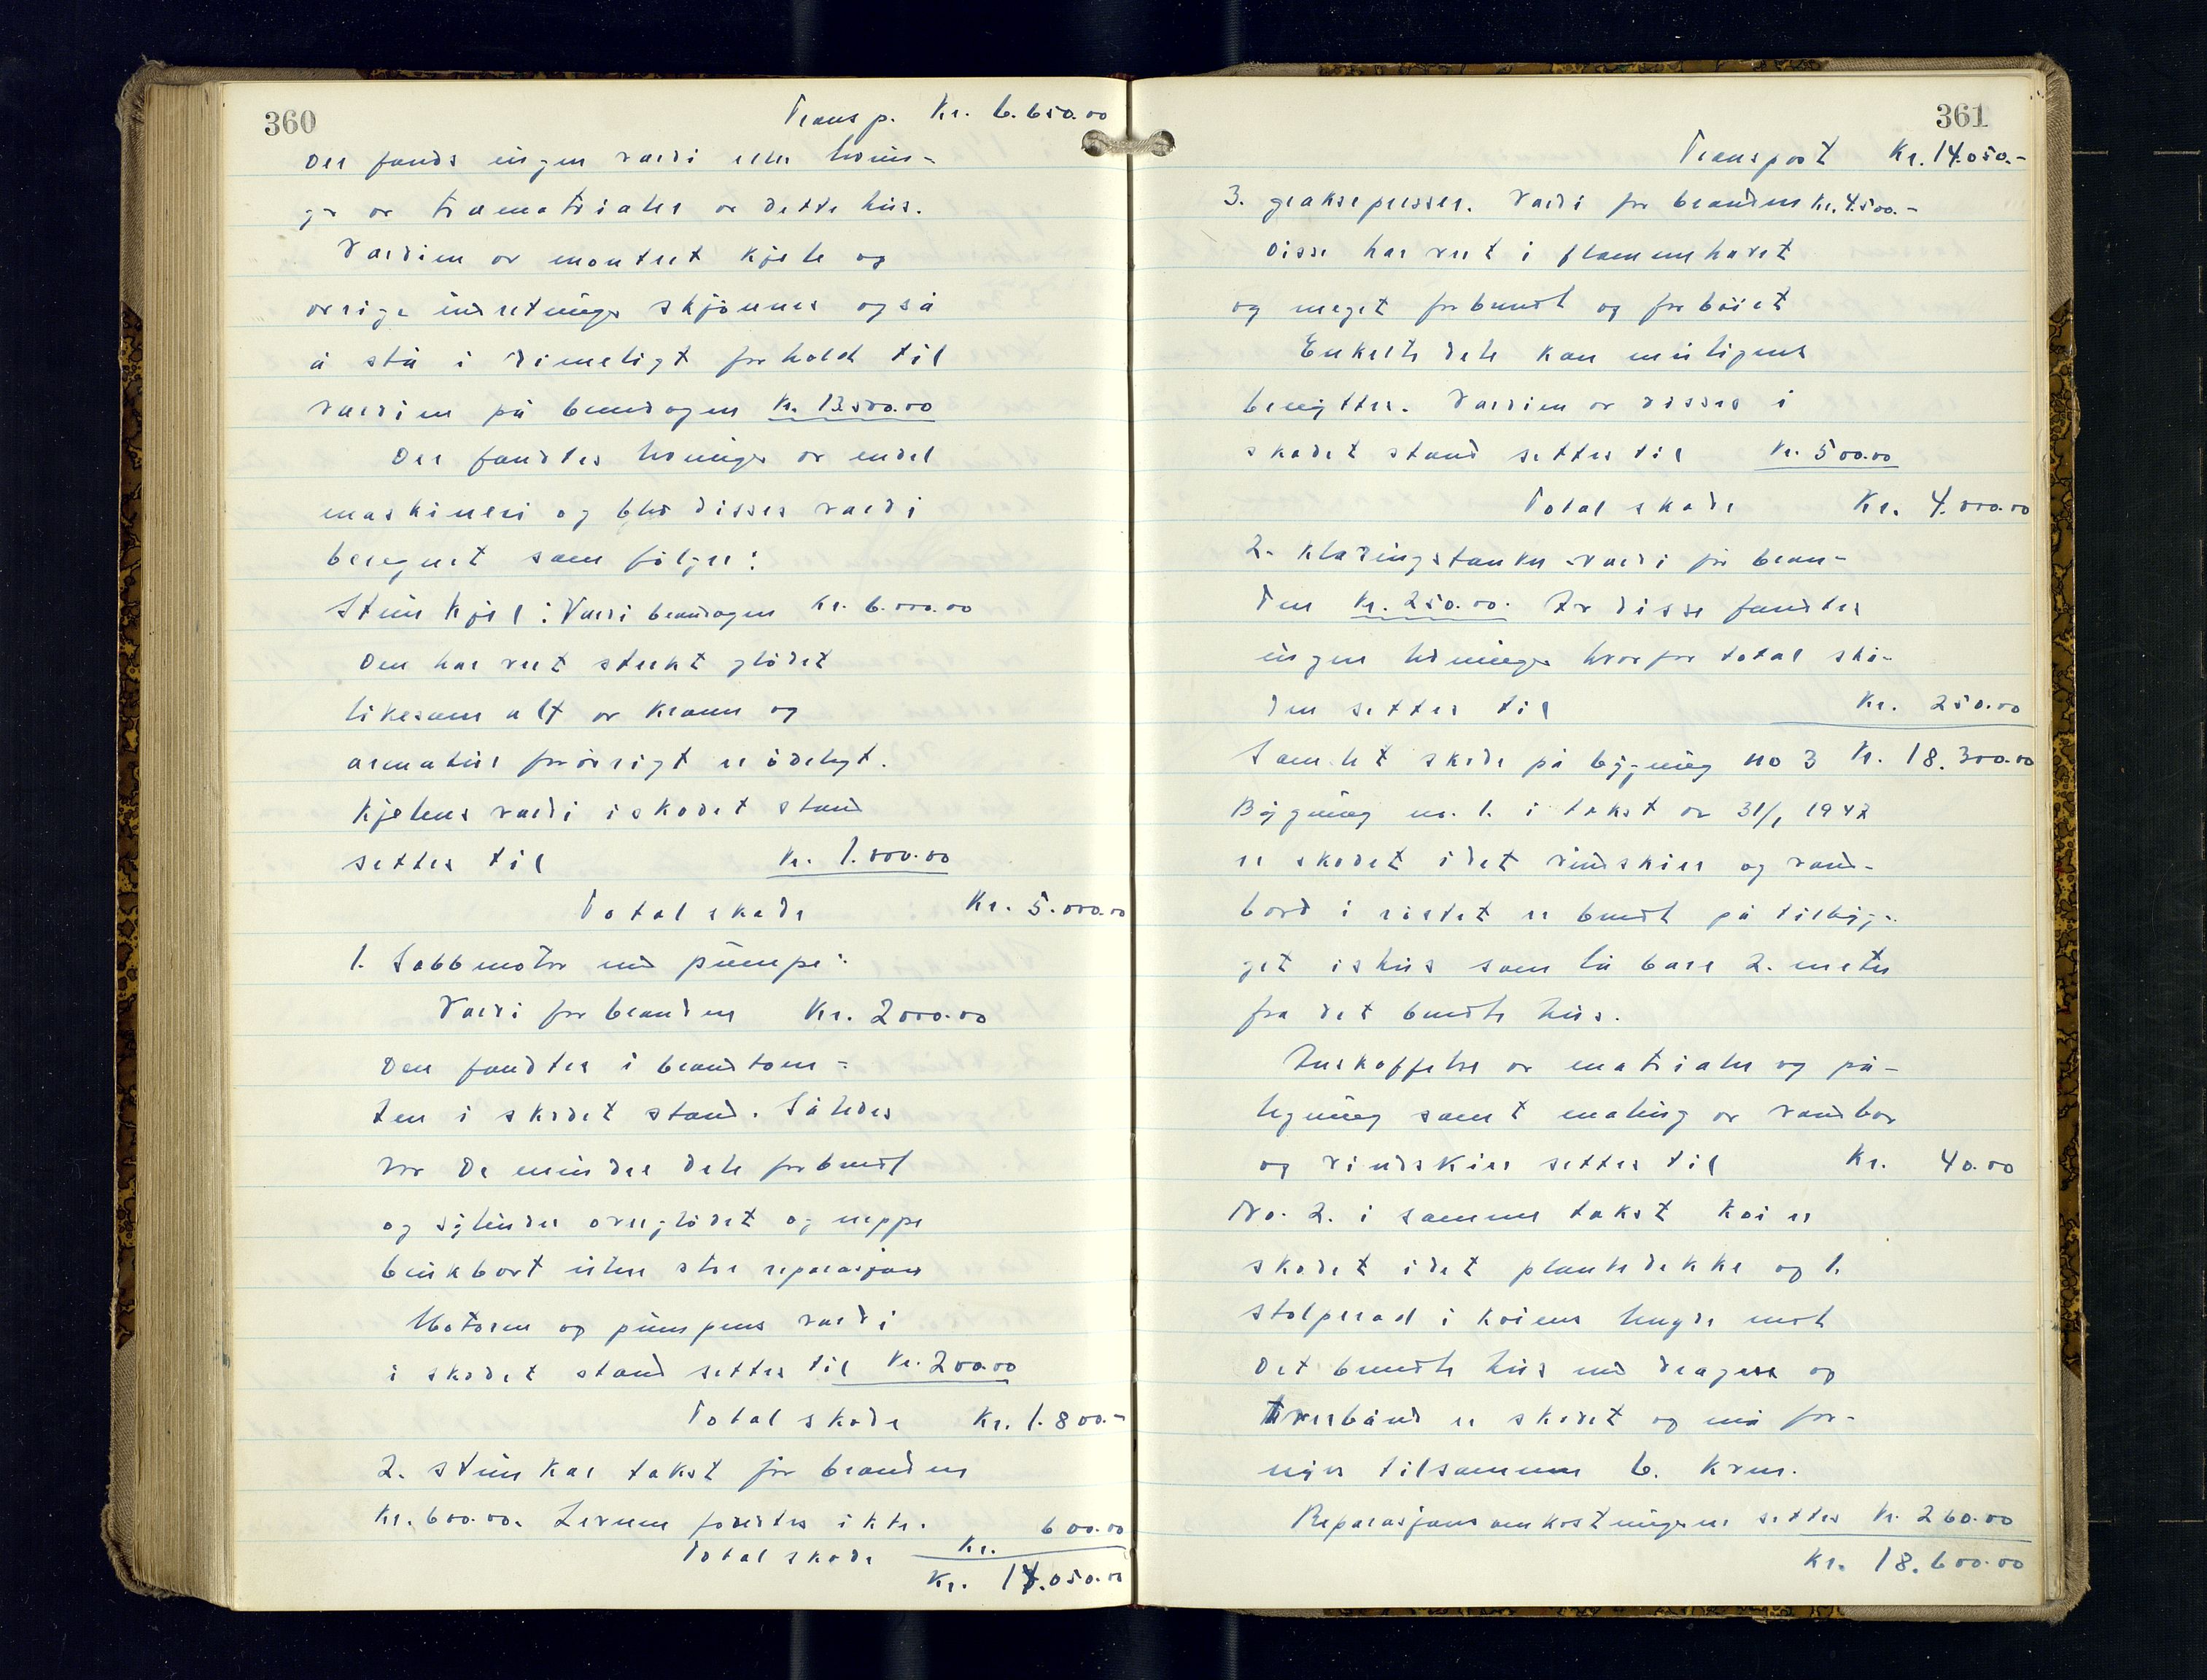 360
Transp. Kr. 6.650.00
Der fands ingen værdi eller levnin-
ger av træmatrialer av dette hus.
Værdien av montert kjele og
øvrige indretninger skjønnes også
å stå i rimeligt forhold til
værdien på branddagen Kr. 13.500.00
Der fandtes levninger av endel
maskineri og blev disses værdi
beregnet som følger:
1 Stim kjel: Værdi branddagen Kr. 6.000.00
Den har vert sterkt glødet
likesom alt av kraner og
armatur forøvrigt er ødelagt.
Kjelens værdi i skadet stand
settes til Kr. 1.000.00
Total skade Kr. 5.000.00
1. Sabbmotor med pumpe:
Værdi før branden Kr. 2000.00
Den fandtes i brandtom-
ten i skadet stand. Således
var de mindre dele forbrendt
og sylinder overglødet og neppe
brukbart uten stor reparasjon
Motoren og pumpens værdi
i skadet stand settes til Kr. 200.00
Total skade Kr. 1.800.-
2. stim kar takst før branden
Kr. 600.00. Levninger fandtes ikke.
Total skade Kr. 600.00
Kr. 14.050.00
361
Transport Kr. 14.050.-
3. graksepresser. Værdi før branden Kr. 4.500.-
Disse har vert i flammehavet
og meget forbrendt og forbøiet
Enkelte dele kan muligens
benyttes. Værdien av disses i
skadet stand settes til Kr. 500.00
Total skade Kr. 4.000.00
2. klaringstanker - værdi før bran-
den Kr. 250.00. Av disse fandtes
ingen levninger hvorfor total ska-
den settes til Kr. 250.00
Samlet skade på bygning no 3 Kr. 18.300.00
Bygning no. 1. i takst av 31/1 1947
er skadet idet vindskier og vand-
bord i røstet er brendt på tilbyg-
get ishus som lå bare 2. meter
fra det brendte hus.
Anskaffelse av matrialer og på-
legning samt maling av vandbor
og vindskier settes til Kr. 40.00
No. 2. i samme takst Kai er
skadet idet plankedekke og 1.
stolperad i kaiens lengde mot
det brendte hus med dragere og
tverbånd er skadet og må for-
nyes tilsammen 6. kvm.
Reparasjonsomkostningene settes Kr. 260.00
Kr. 18.600.00